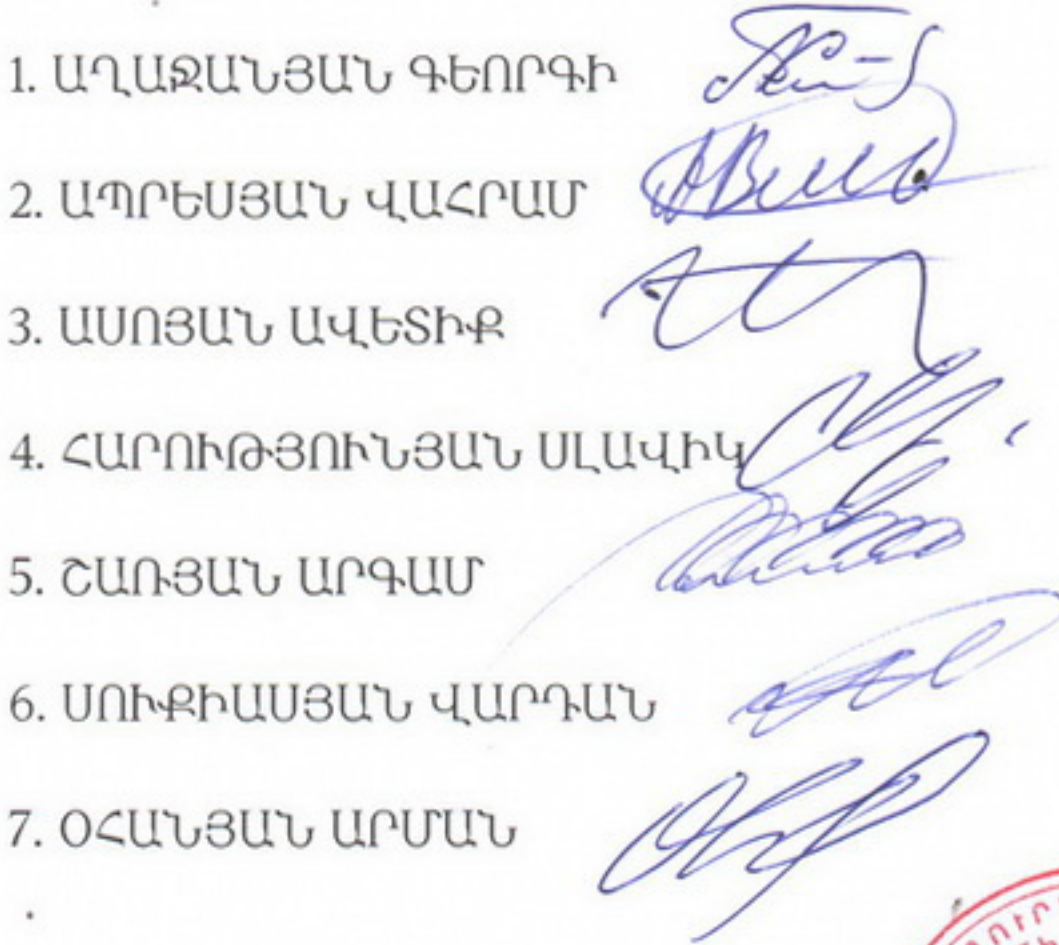 1. ԱՂԱՋԱՆՅԱՆ ԳԵՈՐԳԻ
2. ԱՊՐԵՍՅԱՆ ՎԱՀՐԱՄ
3. ԱՍՈՅԱՆ ԱՎԵՏԻՔ
4. ՀԱՐՈՒԹՅՈՒՆՅԱՆ ՍԼԱՎԻԿ
5. ՇԱՌՅԱՆ ԱՐԳԱՄ
6. ՍՈՒՔԻԱՍՅԱՆ ՎԱՐԴԱՆ
7. ՕՀԱՆՅԱՆ ԱՐՄԱՆ